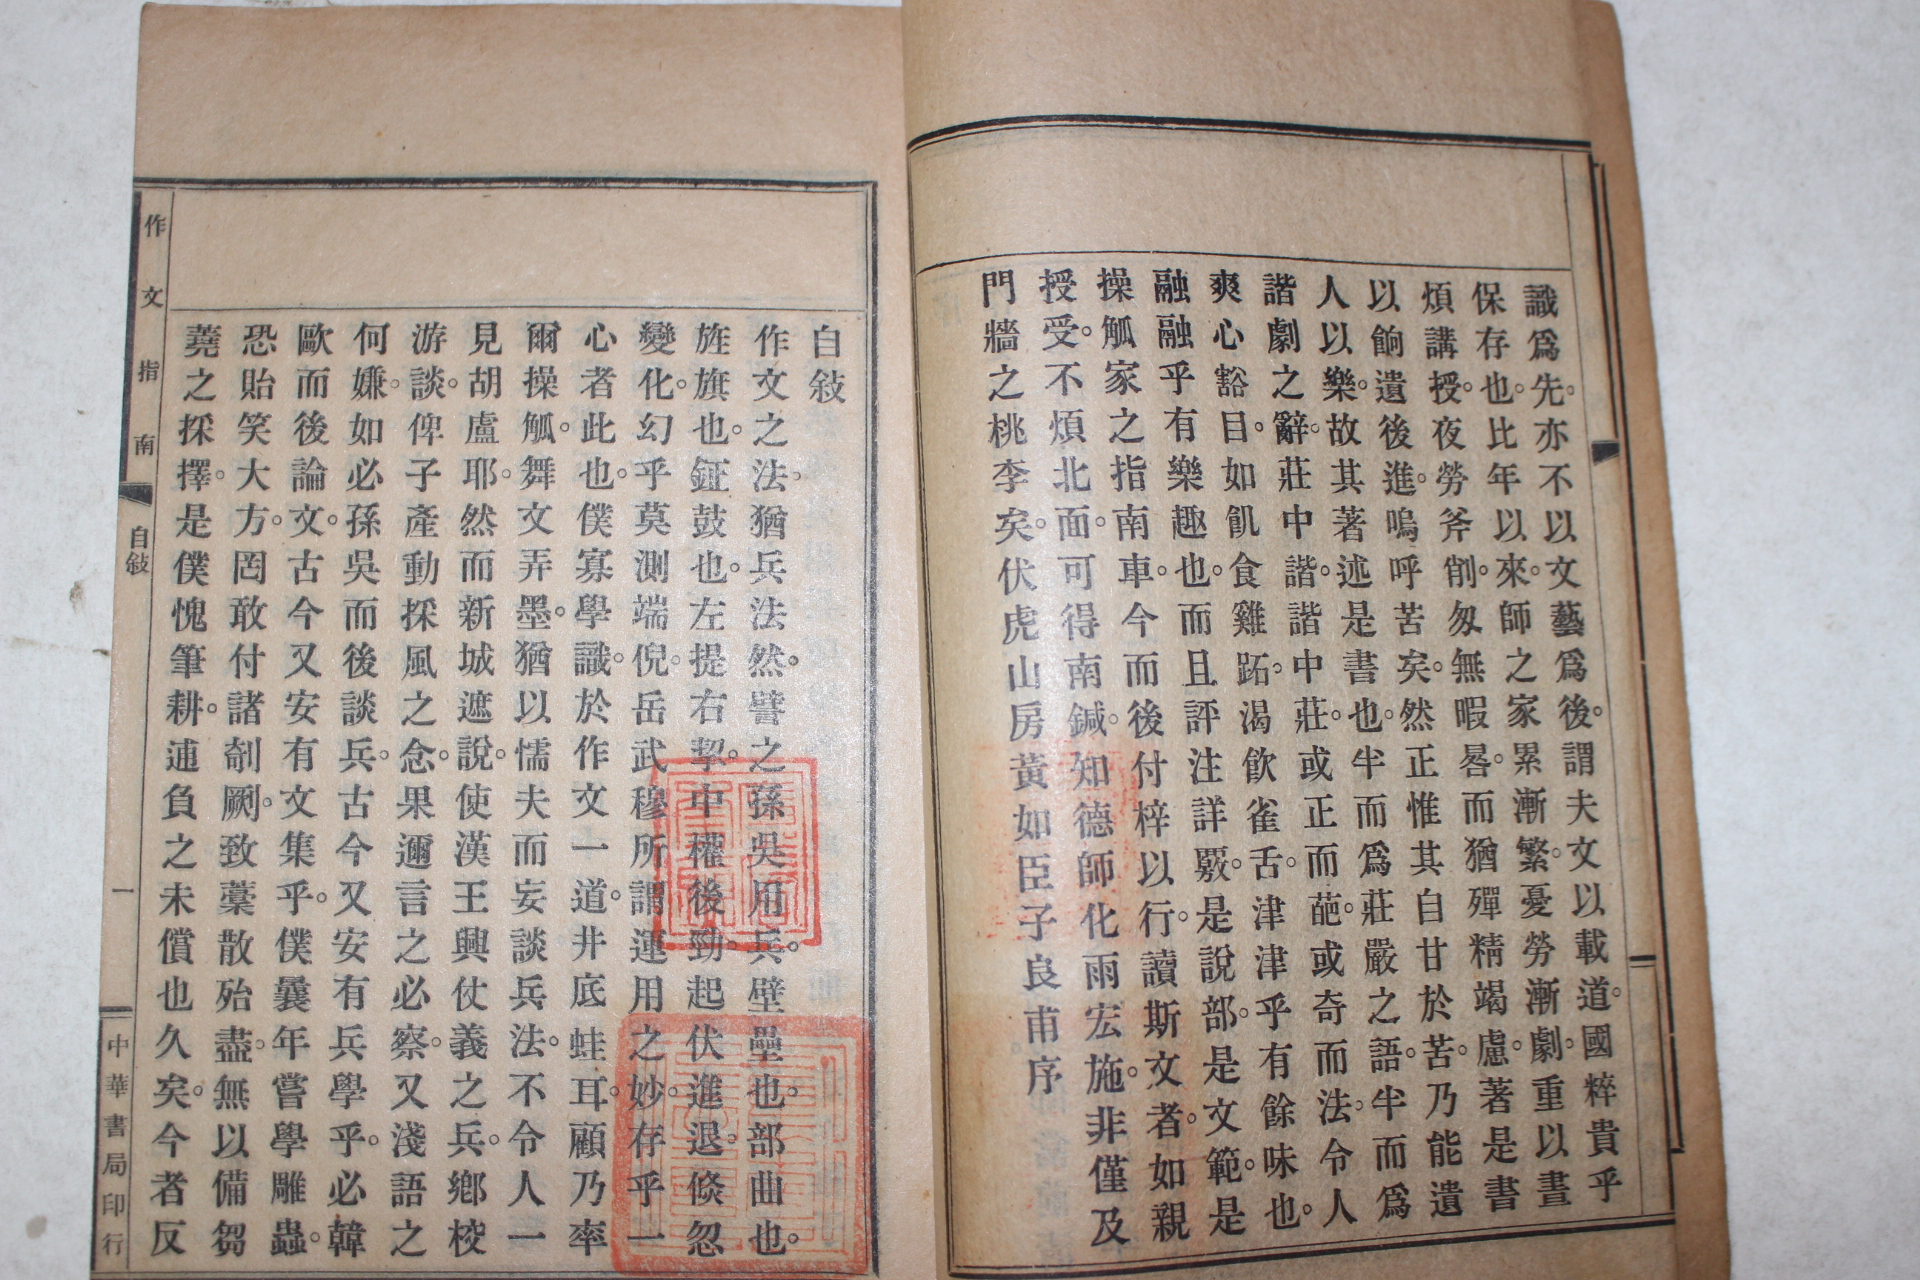 識爲先。亦不以文藝爲後。謂夫文以載道。國粹貴乎
保存也。比年以來。師之家累漸繁。憂勞漸劇。重以晝
煩講授。夜勞斧削。匆無暇晷。而猶殫精竭慮。著是書
以餉遺後進。嗚呼苦矣。然正惟其自甘於苦。乃能遺
人以樂。故其著述是書也。半而爲莊嚴之語。半而爲
諧劇之辭。莊中諧。諧中莊。或正而葩。或奇而法。令人
爽心豁目。如飢食雞跖。渴飲雀舌。津津乎有餘味也。
融融乎有樂趣也。而且評注詳覈。是說部。是文範。是
操觚家之指南車。今而後付梓以行。讀斯文者。如親
授受。不煩北面。可得南鍼。知德師化雨宏施。非僅及
門牆之桃李矣。伏虎山房黃如臣子良甫序
自敍
作文之法。猶兵法然。譬之孫吳用兵。壁壘也。部曲也。
旌旗也。鉦鼓也。左提右挈。中權後勁。起伏進退。倏忽
變化。幻乎莫測端倪。岳武穆所謂運用之妙。存乎一
心者此也。僕寡學識。於作文一道。井底蛙耳。顧乃率
爾操觚。舞文弄墨。猶以懦夫而妄談兵法。不令人一
見胡盧耶。然而新城遮說。使漢王興仗義之兵。鄕校
游談。俾子產動採風之念。果邇言之必察。又淺語之
何嫌。如必孫吳而後談兵。古今又安有兵學乎。必韓
歐而後論文。古今又安有文集乎。僕曩年嘗學雕蟲。
恐貽笑大方。罔敢付諸剞劂。致藁散殆盡。無以備芻
蕘之採擇。是僕愧筆耕。逋負之未償也久矣。今者反
作文指南
自敍
一
中華書局印行